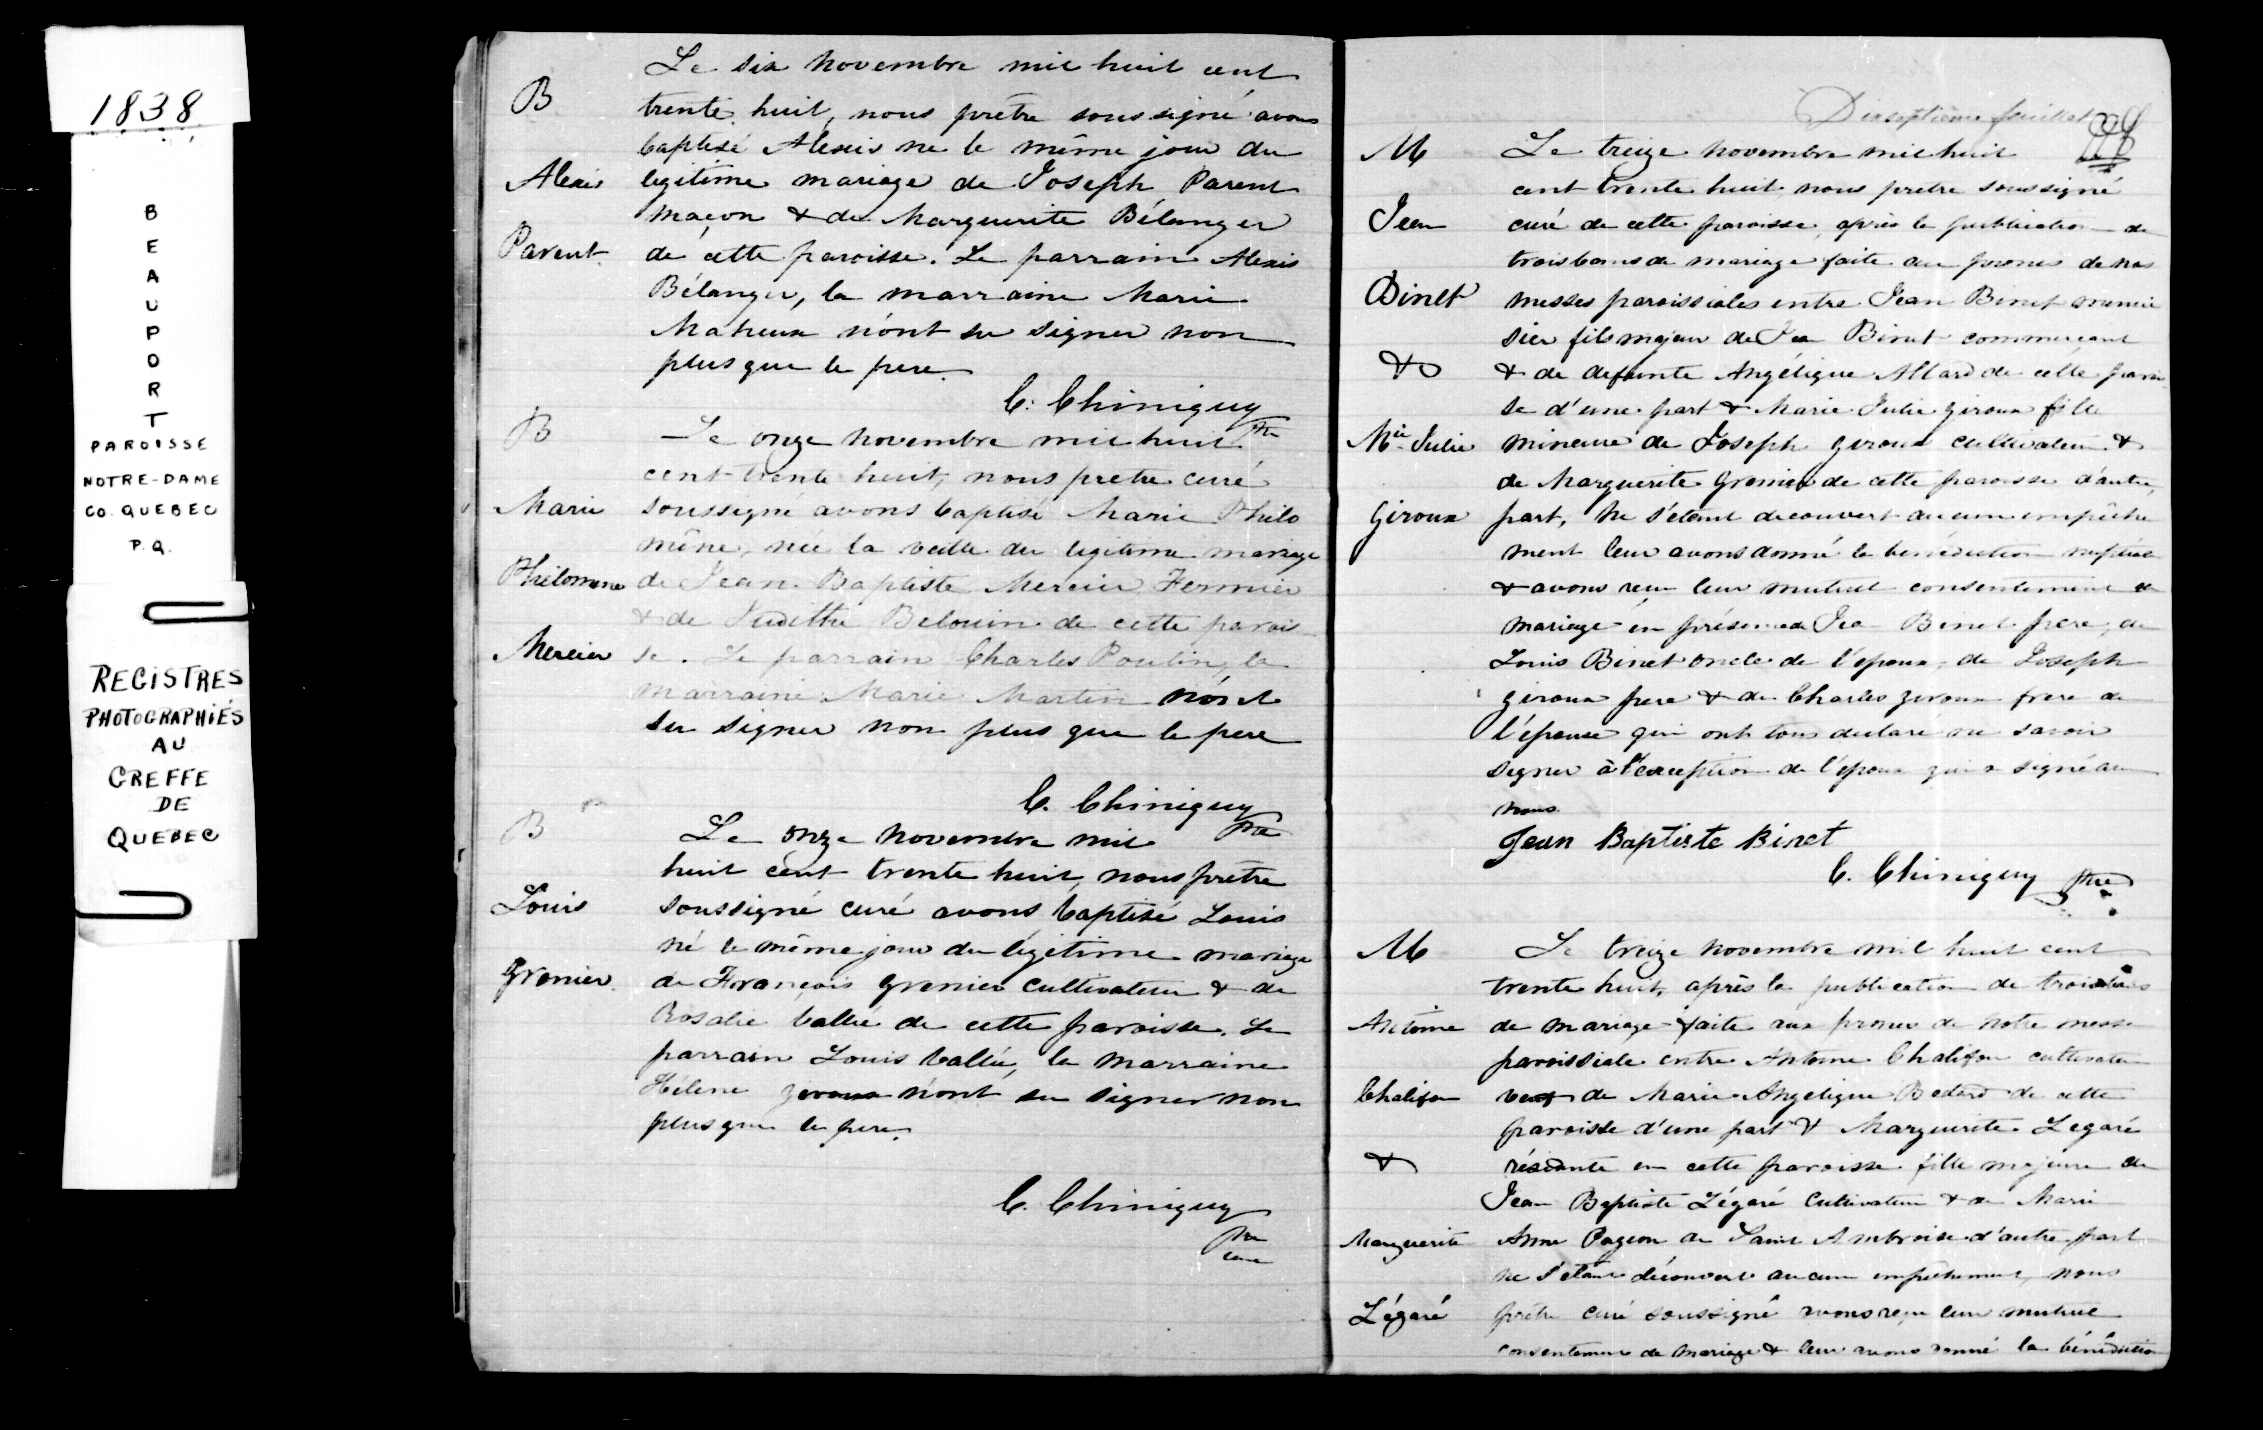 1838
B
E
A
U
P
O
R
T
PAROISSE
NOTRE-DAME
CO. QUEBEC
P.Q.
REGISTRES
PHOTOGRAPHIÉS
AU
GREFFE
DE
QUEBEC
B
Alexis
Parent
Le six Novembre mil huit cent
trente huit, nous prêtre soussigné avons
baptisé Alexis né le même jour du
legitime mariage de Joseph Parent
Maçon & de Marguerite Bélanger
de cette paroisse. Le parrain Alexis
Bélanger, la marraine Marie
Maheux n'ont su signer non
plus que le pere.
C. Chiniquy
Ptre
B
Marie
Philomene
Mercier
Le onze Novembre mil huit
cent trente huit, nous pretre curé
soussigne avons baptisé Marie Philo
mène, née la veille du legitime mariage
de Jean Baptiste Mercier Fermier
& de Judithe Belouin de cette parois
se. Le parrain Charles Poulin, la
marraine Marie Martin n'ont
su signer non plus que le pere
C. Chiniquy
Ptre
B
Louis
Grenier
Le onze Novembre mil
huit cent trente huit, nous prêtre
soussigné curé avons baptisé Louis
né le même jour du légitime mariage
de François Grenier Cultivateur & de
Rosalie Vallée de cette paroisse. Le
parrain Louis Vallée, la marraine
Hélene Giroux n'ont su signer non
plus que le pere.
C. Chiniquy
Ptre
curé
Dixseptième feuillet
M
Jean
Binet
&
Mie Julie
Giroux
Le treize Novembre mil huit
cent trente huit, nous pretre soussigné
curé de cette paroisse, après la publication de
trois bans de mariage faite au prones de nos
messes paroissiales entre Jean Binet menui
sier fils majeur de Jean Binet commerçant
& de defunte Angélique Allard de cette parois
se d'une part & Marie Julie Giroux fille
mineure de Joseph Giroux cultivateur &
de Marguerite Grenier de cette paroisse d'autre
part, Ne s'étant decouvert aucun empêche
ment leur avons donné la bénédiction nuptiale
& avons reçu leur mutuel consentement de
mariage en présence de Jean Binet pere, de
Louis Binet oncle de l'epoux, de Joseph
Giroux pere & de Charles Giroux frere de
l'épouse qui ont tous declaré ne savoir
signer à l'exception de l'epoux qui a signé avec
nous.
Jean Baptiste Binet
C. Chiniquy Ptre
M
Antoine
Chalifou
&
Marguerite
Légaré
Le treize Novembre mil huit cent
trente huit, après la publication de trois bans
de mariage faite aux prones de notre messe
paroissiale entre Antoine Chalifou cultivateur
veuf de Marie Angelique Bedard de cette
paroisse d'une part & Marguerite Legaré
résidante en cette paroisse fille majeure de
Jean Baptiste Légaré Cultivateur & de Marie
Anne Pageau de Saint Ambroise d'autre part
ne s'étant découvert aucun empêchement, nous
prêtre curé soussigné avons reçu leur mutuel
consentement de mariage & leur avons donné la bénédiction